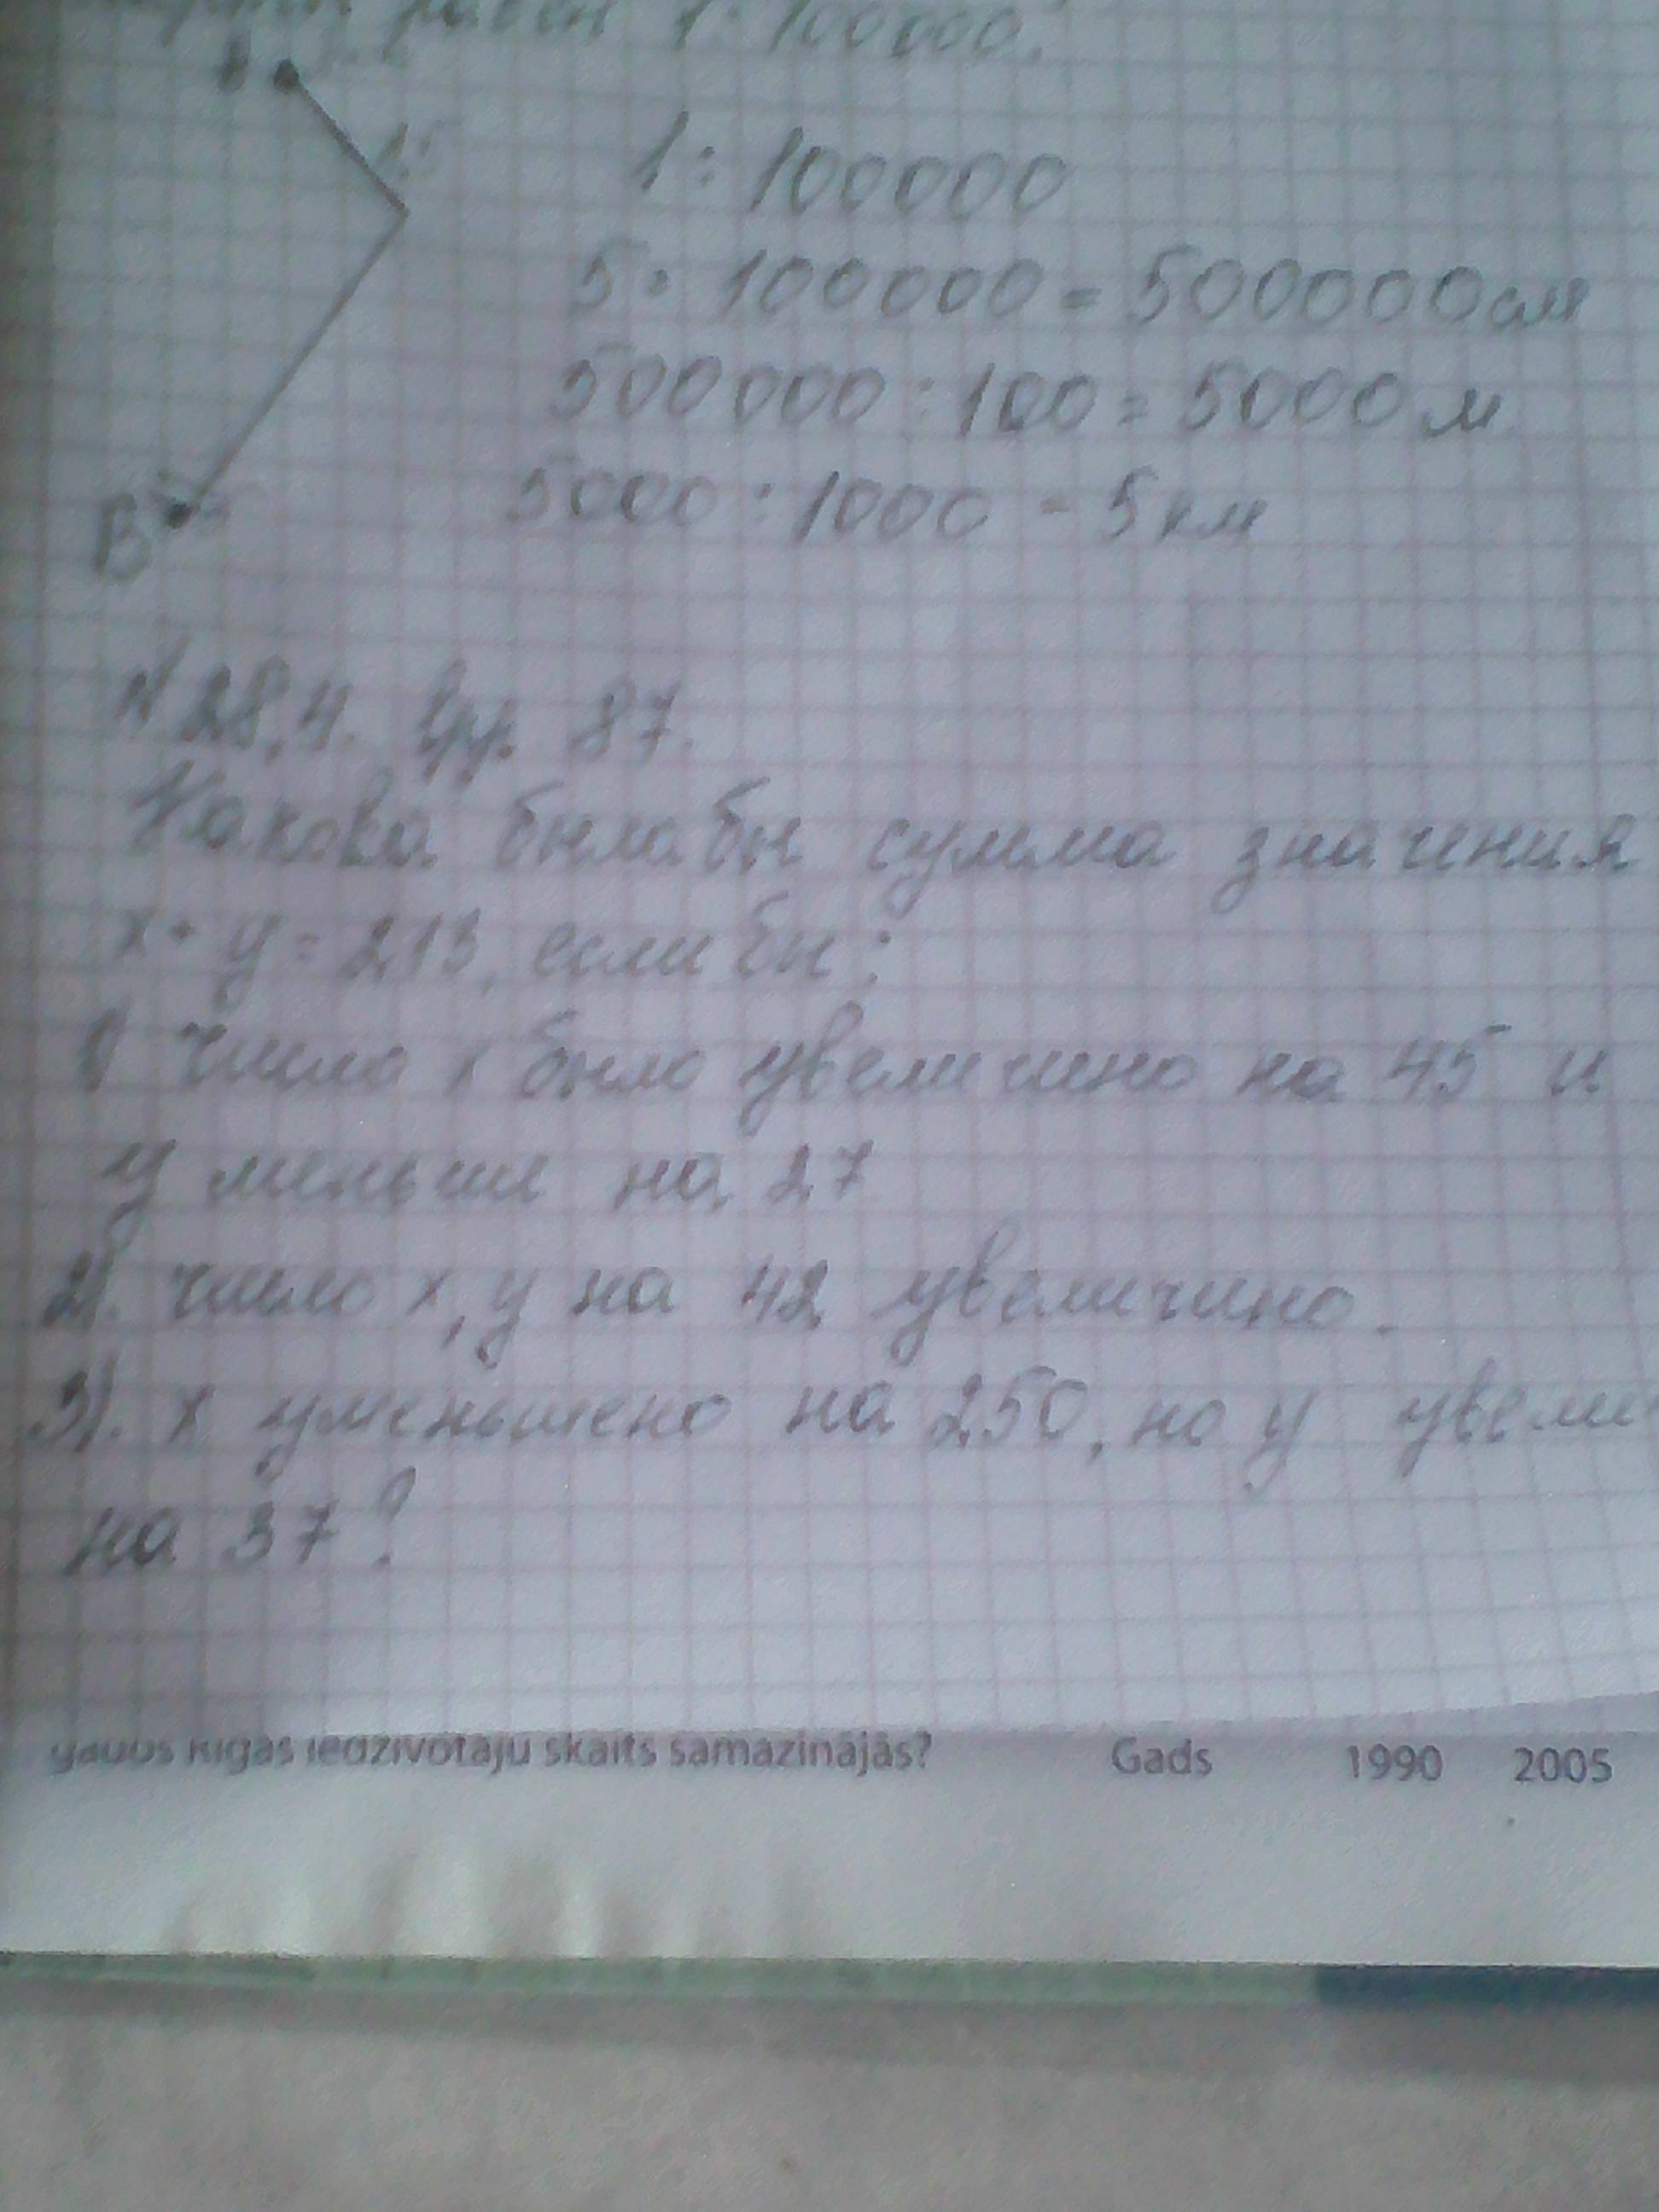 равен 1:100000.
1:100000
5·100000=500000см
500000:100=5000м
5000:1000=5км
B
N28.4. 87.
Какова была бы сумма значения
x+y=213, если бы:
1) число x было увеличино на 45 и
y меньше на 27
2). число x, y на 42 увеличино.
3). x уменьшено на 250, но y увели
на 37?
gados Rīgas iedzīvotāju skaits samazinājās?
Gads 1990 2005